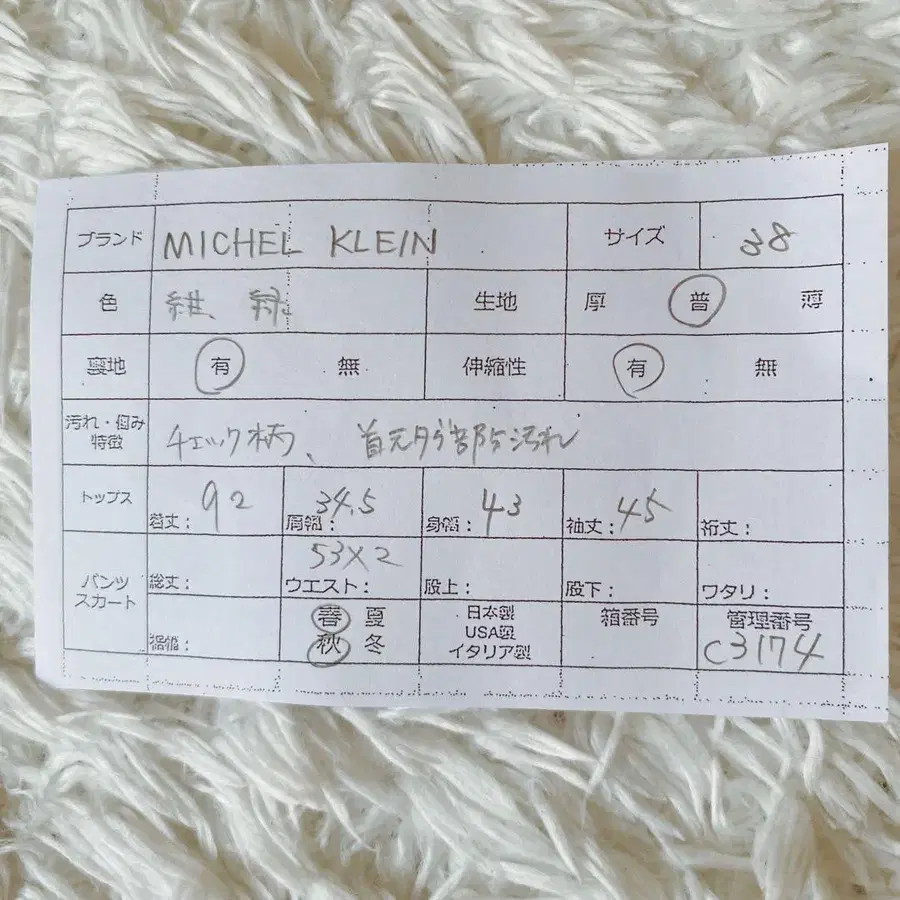 ブランド MICHEL KLEIN サイズ 38
色 紺、緑 生地 厚 普 薄
裏地 有 無 伸縮性 有 無
汚れ・傷み
特徴 チェック柄、首元タグ部分汚れ
トップス 着丈: 92 肩幅: 34.5 身幅: 43 袖丈: 45 裄丈:
パンツ
スカート 総丈: ウエスト: 53×2 股上: 股下: ワタリ:
裾幅: 春 夏 秋 冬 日本製 USA製 イタリア製 箱番号 管理番号
C3174